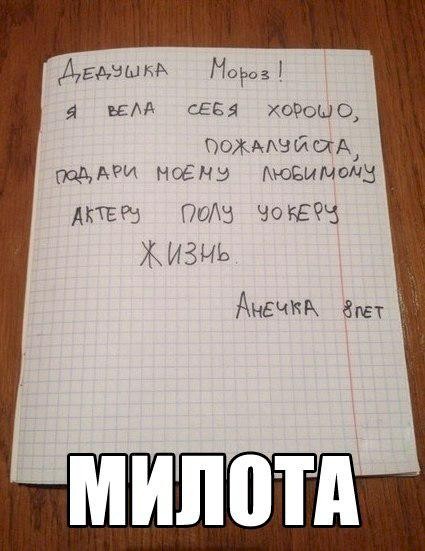 Дедушка Мороз!
я вела себя хорошо,
пожалуйста,
подари моему любимому
актеру Полу Уокеру
жизнь.
Анечка 8 лет
МИЛОТА